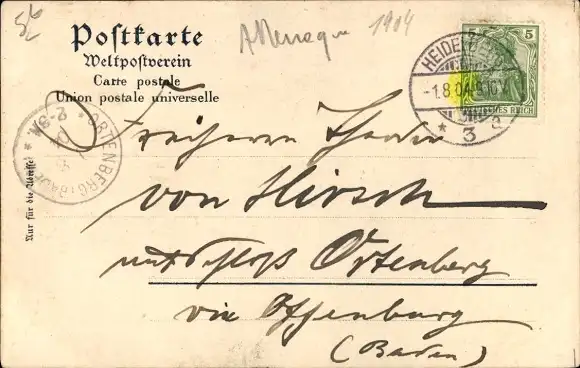 56
Postkarte
Allemagne 1904
Weltpostverein
Carte postale
Union postale universelle
5
DEUTSCHES REICH
HEIDELBERG
-1.8.04.9-10V.
* 3 a
ORTENBERG (BADEN)
2-3N.
Nur für die Adresse
Freiherrn Theodor
von Hirsch
Schloß Ortenberg
via Offenburg
(Baden)